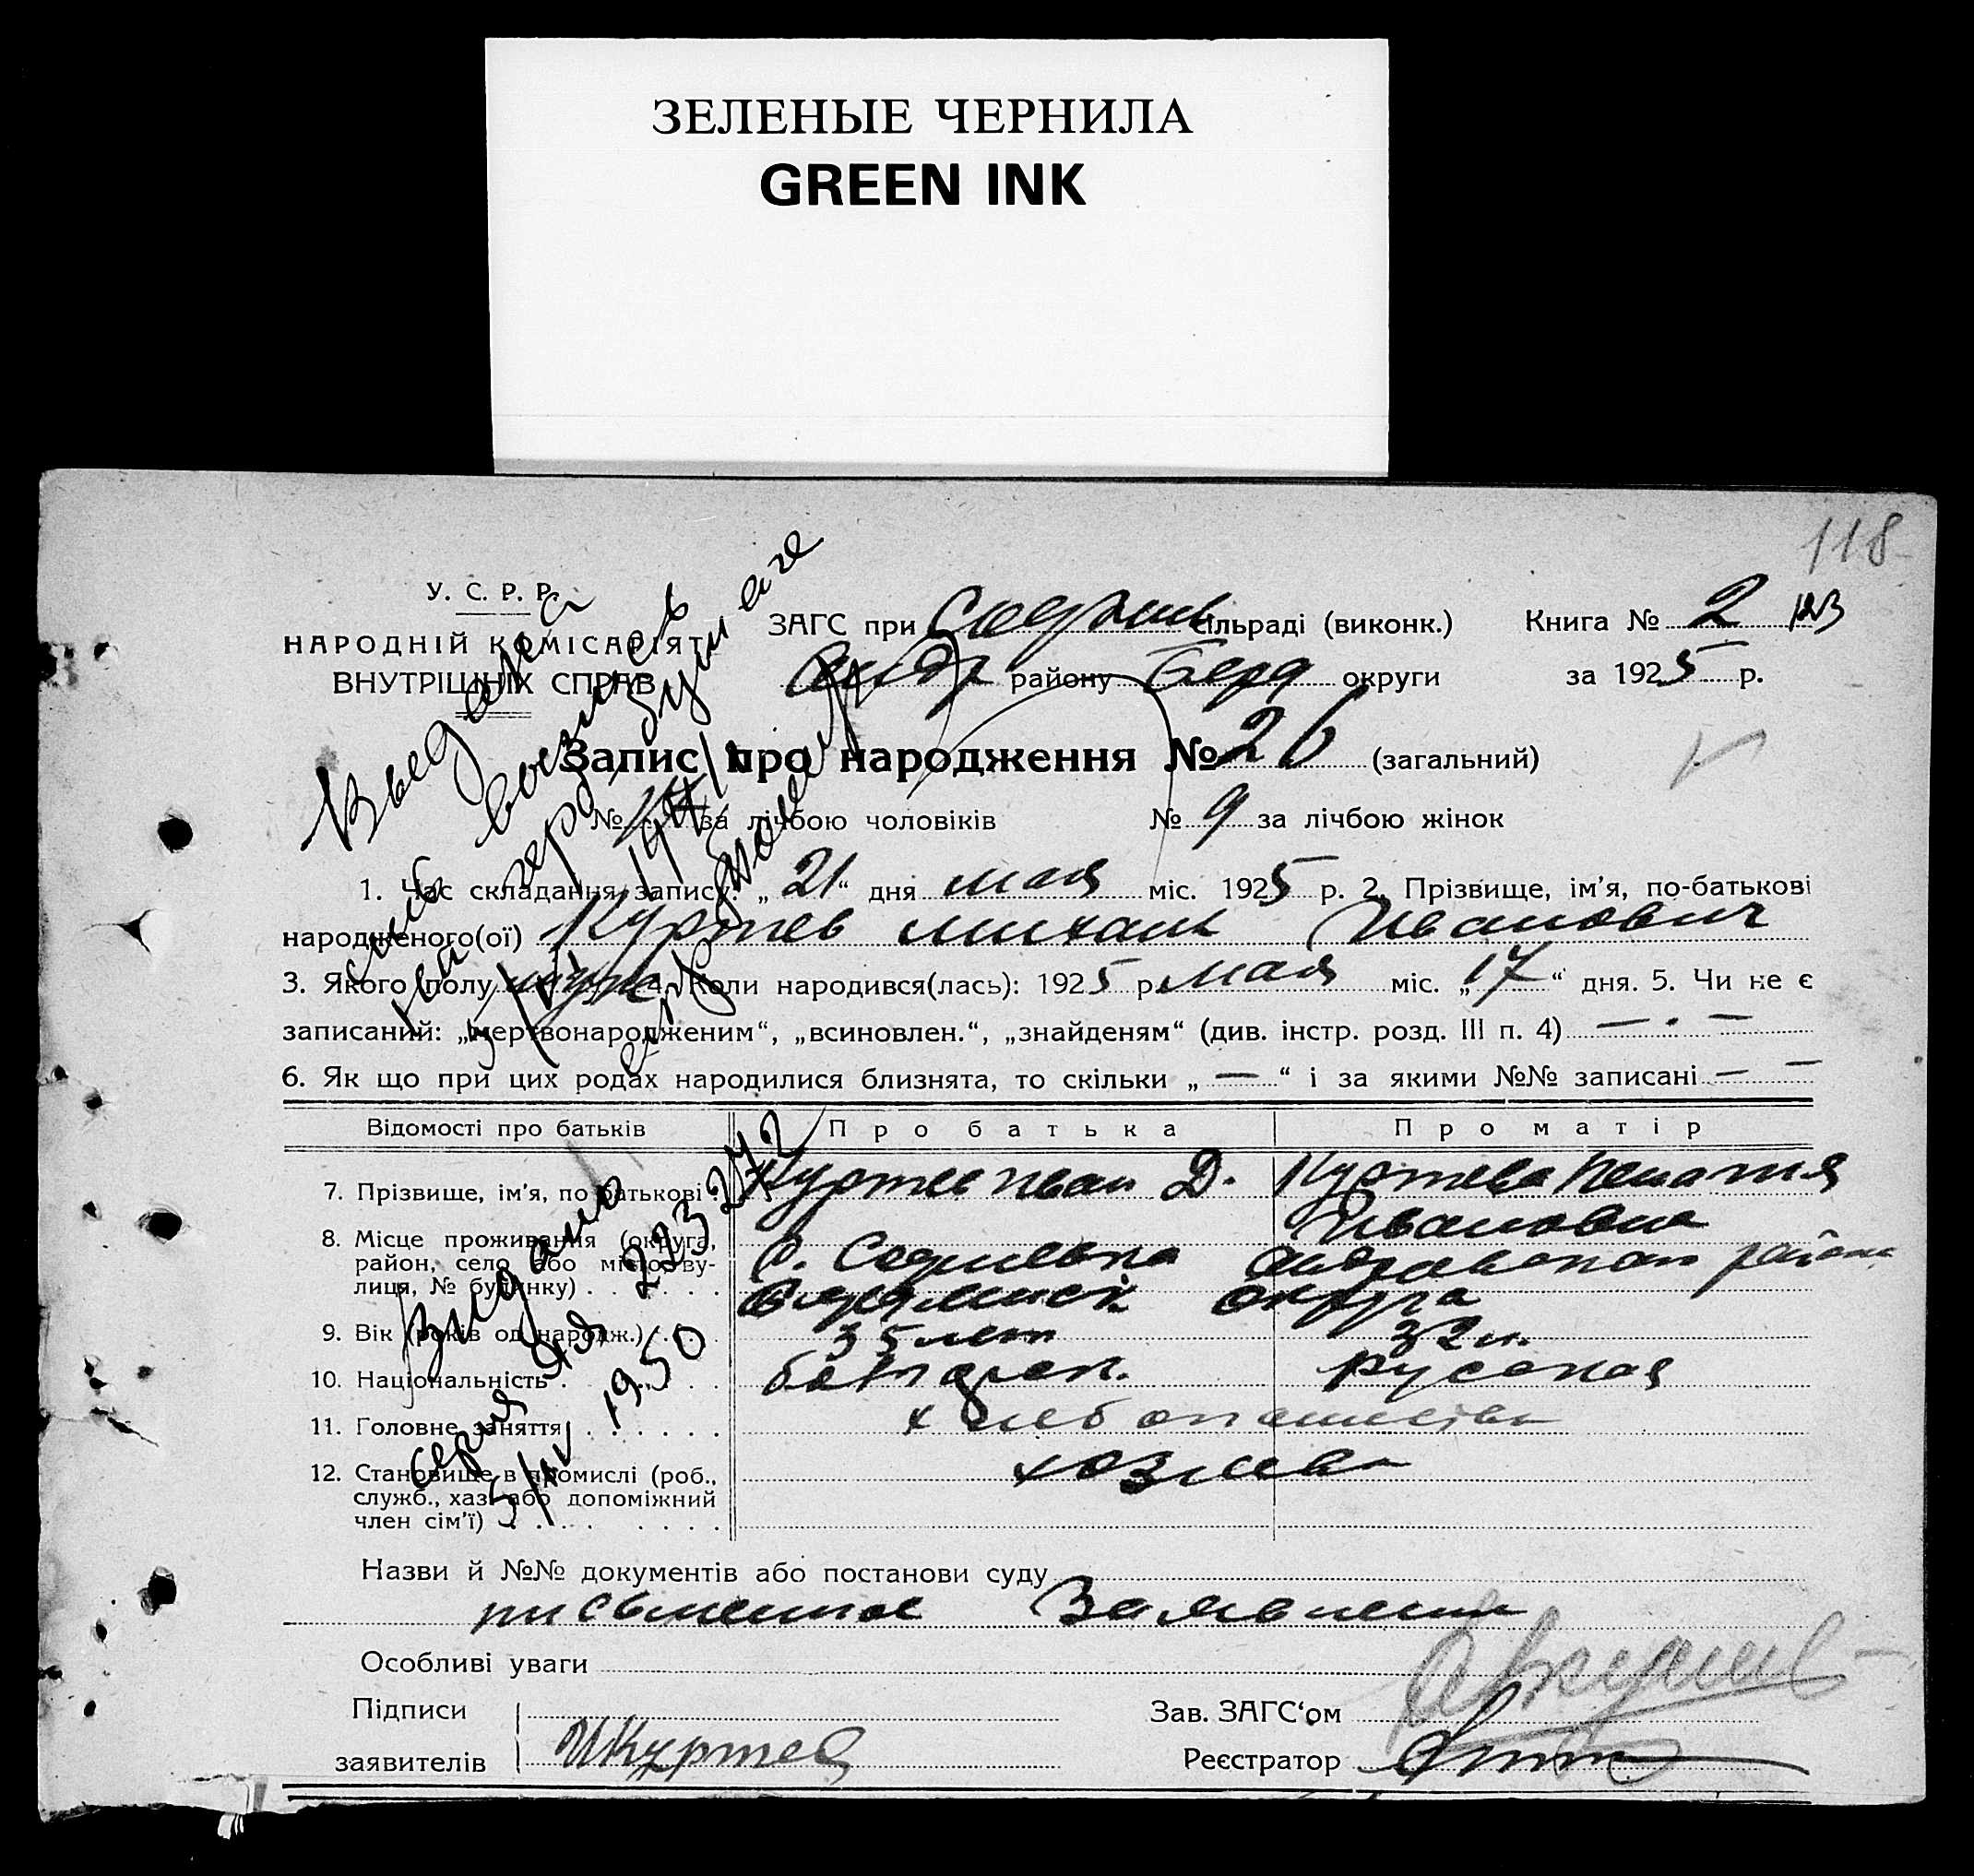 ЗЕЛЕНЫЕ ЧЕРНИЛА
GREEN INK
118
У. С. Р. Р.
НАРОДНІЙ КОМІСАРІЯТ
ВНУТРІШНІХ СПРАВ
ЗАГС при сільраді (виконк.) Книга № 2
Андр району Берд округи за 1925 р.
Запис про народження № 26 (загальний)
№ за лічбою чоловіків № 9 за лічбою жінок
1. Час складання запису: „21“ дня мая міс. 1925 р. 2. Прізвище, ім’я, по-батькові
народженого(ої) Куртев михаил Иванович
3. Якого полу муж 4. Коли народився(лась): 1925 р. мая міс. „17“ дня. 5. Чи не є
записаний: „мертвонародженим“, „всиновлен.“, „знайденям“ (див. інстр. розд. III п. 4) — . —
6. Як що при цих родах народилися близнята, то скільки „—“ і за якими №№ записані — —
Відомості про батьків Про батька Про матір
7. Прізвище, ім’я, по батькові Куртев иван Д. Куртева
Ивановна
8. Місце проживання (округа,
район, село або місто, ву-
лиця, № будинку)
округа
9. Вік (років од народж.) 35 лет 32 л.
10. Національність болгарск. Русская
11. Головне заняття хлебопашество
12. Становище в промислі (роб.,
служб., хаз. або допоміжний
член сім’ї)
хозяева
Назви й №№ документів або постанови суду
письменное Заявление
Особливі уваги
Підписи
заявителів ИКуртев
Зав. ЗАГС‘ом
Реєстратор
Видано
серия ЯЯ 223272
5/IV 1950